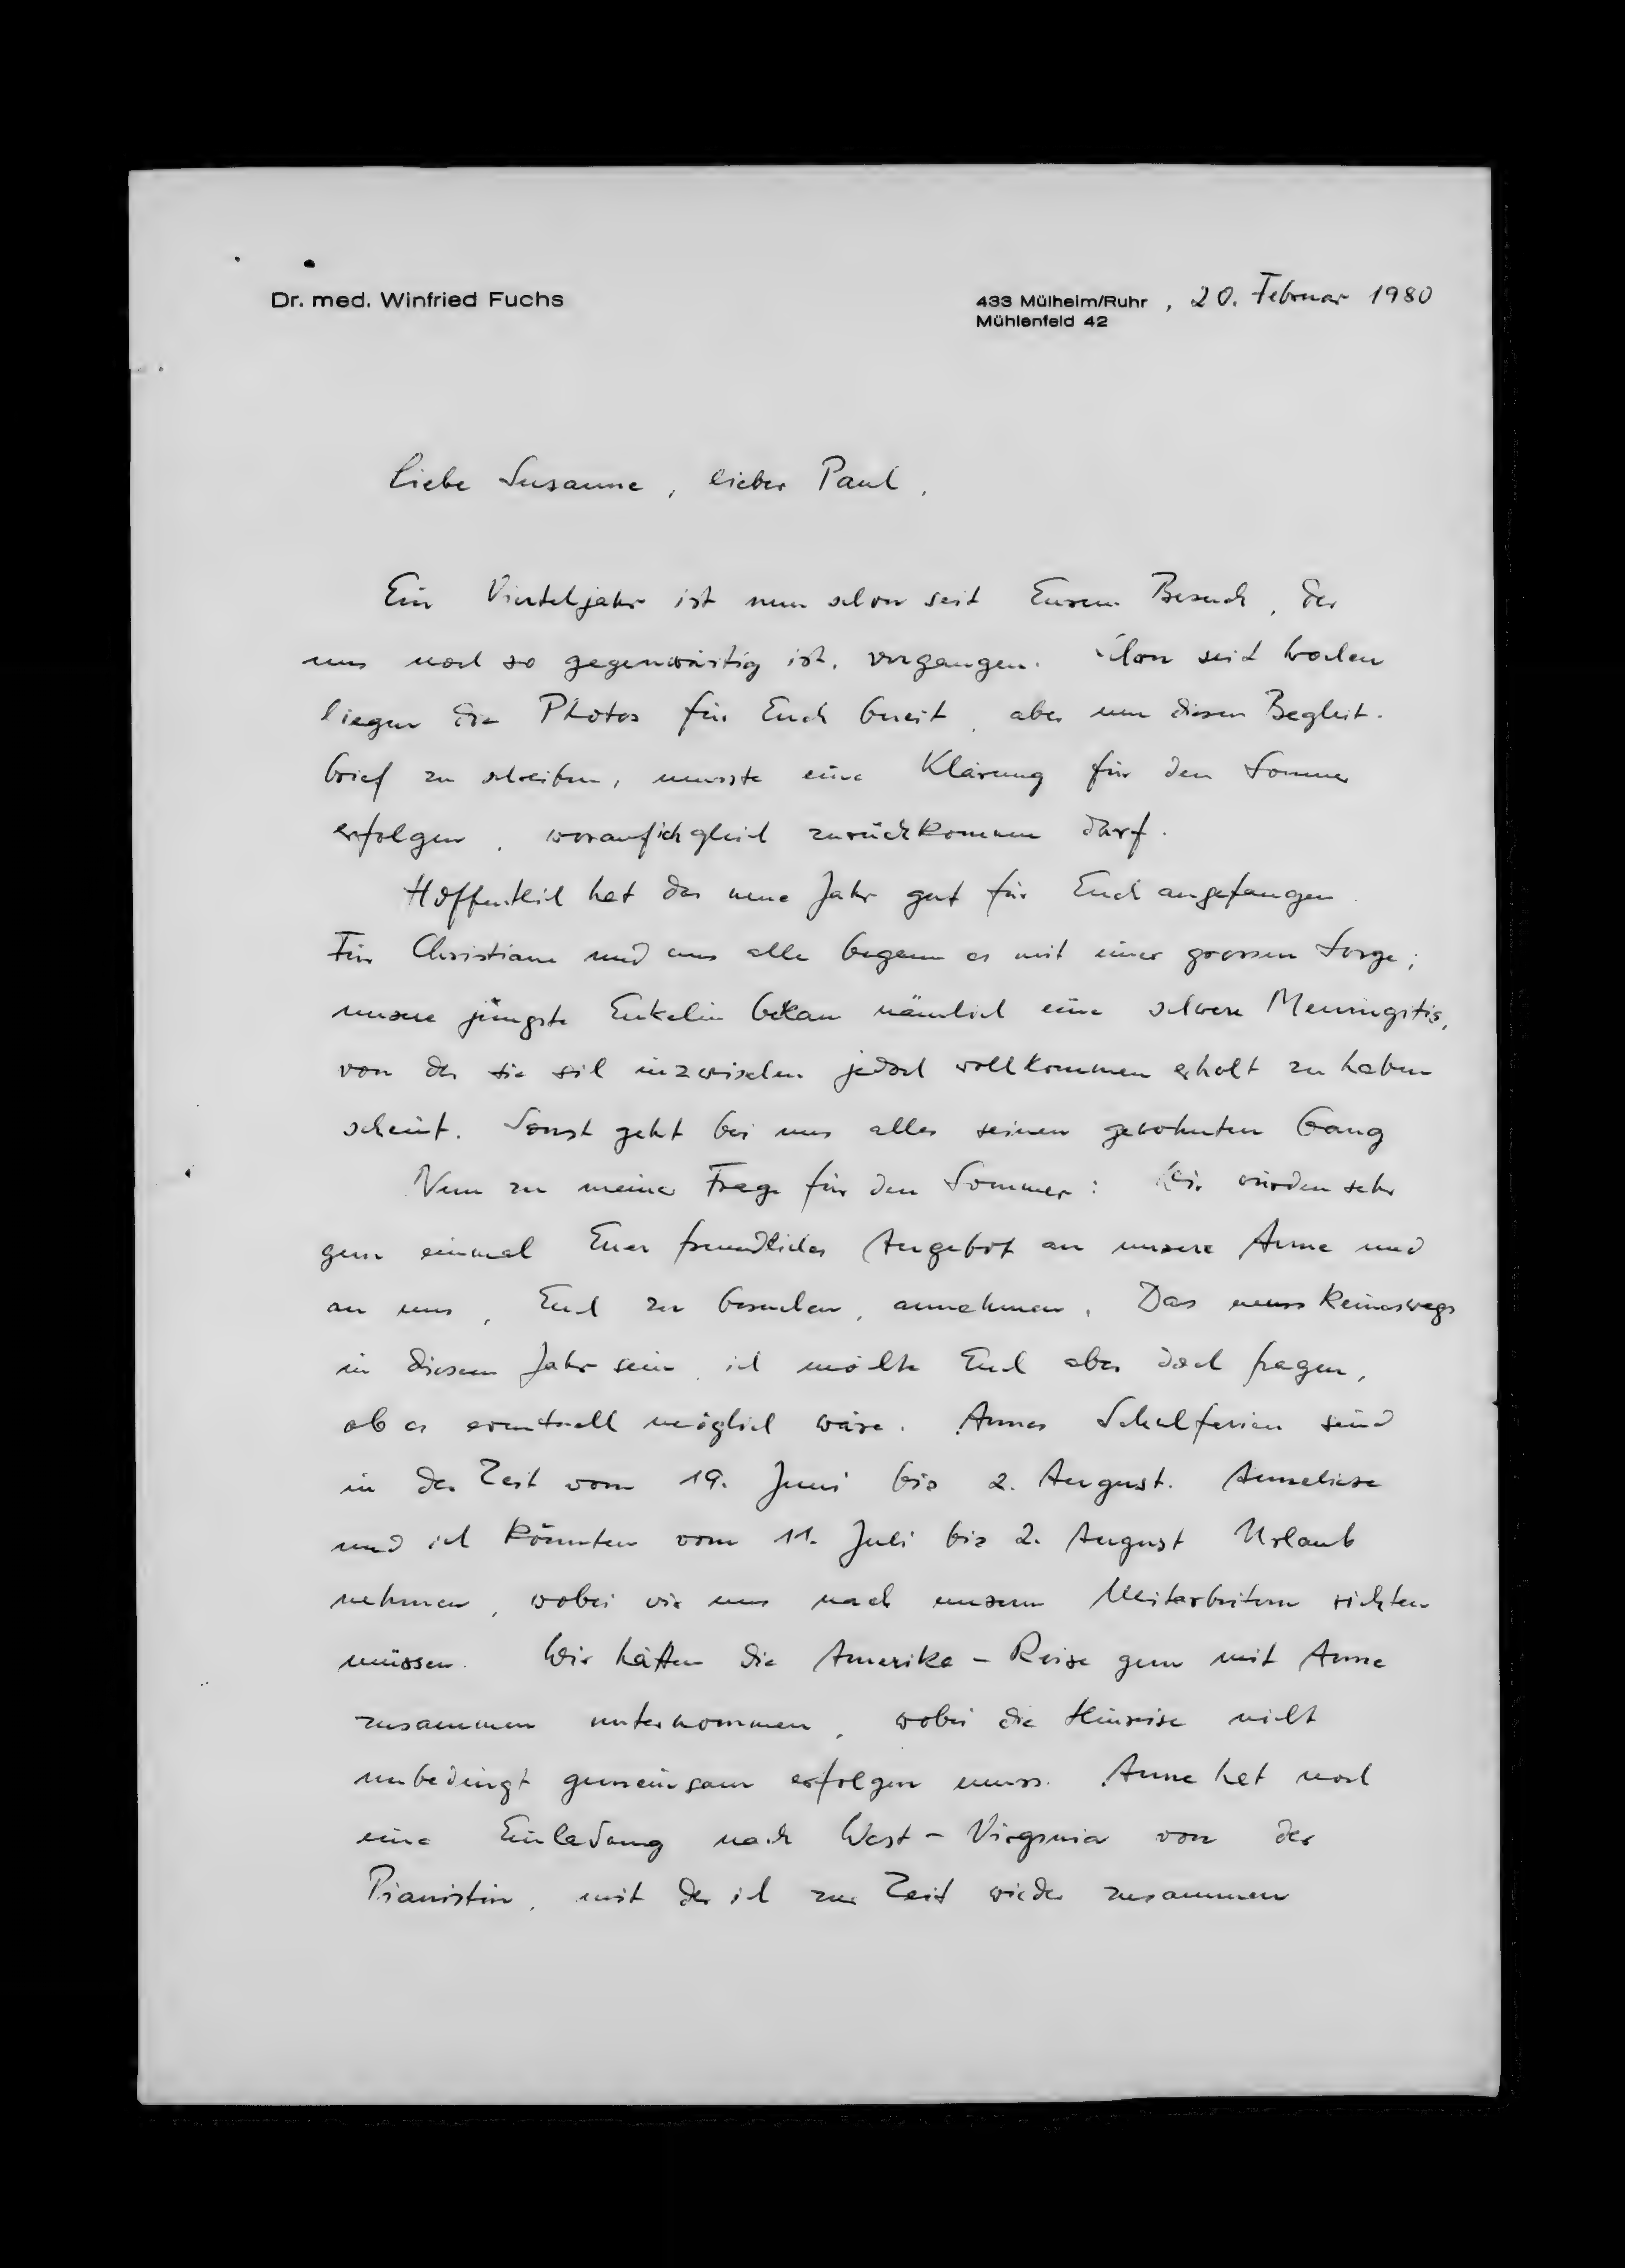 Dr. med. Winfried Fuchs
433 Mülheim/Ruhr, 20. Februar 1980
Mühlenfeld 42
Liebe Susanne, lieber Paul,
Ein Vierteljahr ist nun schon seit Eurem Besuch, der
uns noch so gegenwärtig ist, vergangen. Schon seit Wochen
liegen die Photos für Euch bereit, aber um diesen Begleit-
brief zu schreiben, musste eine Klärung für den Sommer
erfolgen, worauf ich gleich zurückkommen darf.
Hoffentlich hat das neue Jahr gut für Euch angefangen.
Für Christiane und uns alle begann es mit einer grossen Sorge;
unsere jüngste Enkelin bekam nämlich eine schwere Meningitis,
von der sie sich inzwischen jedoch vollkommen erholt zu haben
scheint. Sonst geht bei uns alles seinen gewohnten Gang
Nun zu meiner Frage für den Sommer: Wir würden sehr
gern einmal Euer freundliches Angebot an unsere Anne und
an uns, Euch zu besuchen, annehmen. Das muss keineswegs
in diesem Jahr sein, ich möchte Euch aber doch fragen,
ob es eventuell möglich wäre. Annes Schulferien sind
in der Zeit vom 19. Juni bis 2. August. Anneliese
und ich könnten vom 11. Juli bis 2. August Urlaub
nehmen, wobei wir uns nach unseren Mitarbeitern richten
müssen. Wir hätten die Amerika-Reise gern mit Anne
zusammen unternommen, wobei die Hinreise nicht
unbedingt gemeinsam erfolgen muss. Anne hat noch
eine Einladung nach West-Virginia von der
Pianistin, mit der ich zur Zeit wieder zusammen